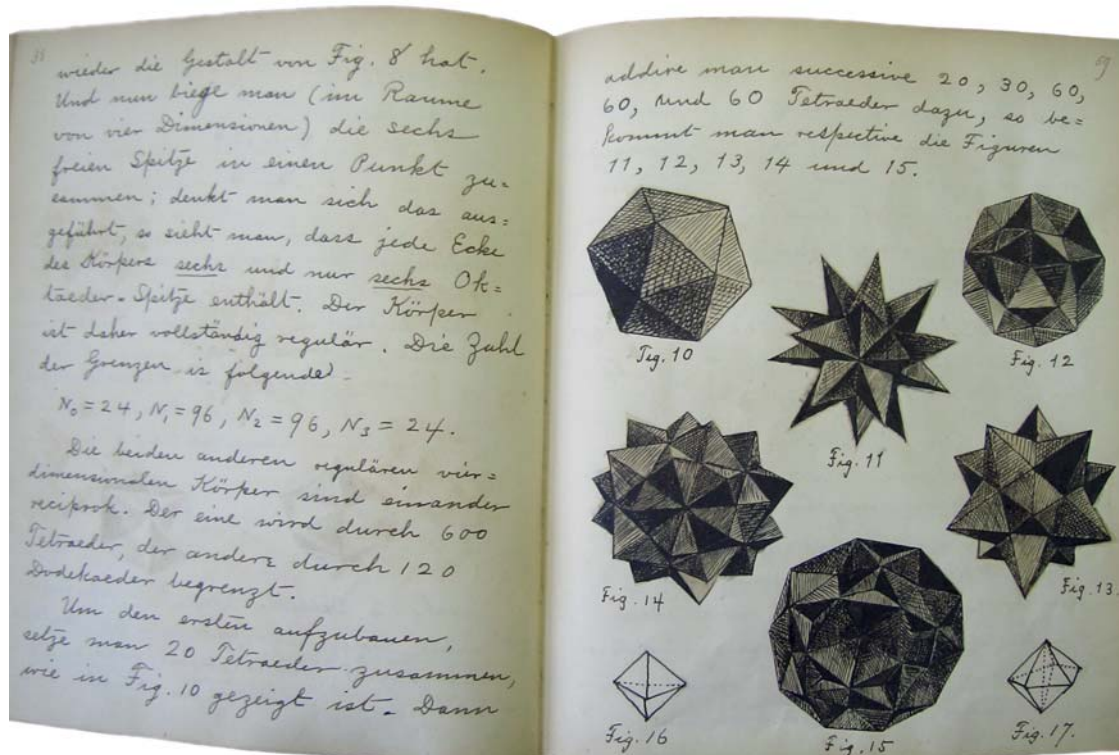 wieder die Gestalt von Fig. 8 hat.
Und nun biege man (im Raume
von vier Dimensionen) die sechs
freien Spitze in einen Punkt zu=
sammen; denkt man sich das aus=
geführt, so sieht man, dass jede Ecke
des Körpers sechs und nur sechs Ok=
taeder-Spitze enthält. Der Körper
ist daher vollständig regulär. Die Zahl
der Grenzen is folgende
N₀ = 24, N₁ = 96, N₂ = 96, N₃ = 24.
Die beiden anderen regulären vier=
dimensionalen Körper sind einander
reciprok. Der eine wird durch 600
Tetraeder, der andere durch 120
Dodekaeder begrenzt.
Um den ersten aufzubauen,
setze man 20 Tetraeder zusammen,
wie in Fig. 10 gezeigt ist. Dann
59
addire man successive 20, 30, 60,
60, und 60 Tetraeder dazu, so be=
kommt man respective die Figuren
11, 12, 13, 14 und 15.
Fig. 10
Fig. 11
Fig. 12
Fig. 14
Fig. 13
Fig. 16
Fig. 15
Fig. 17.